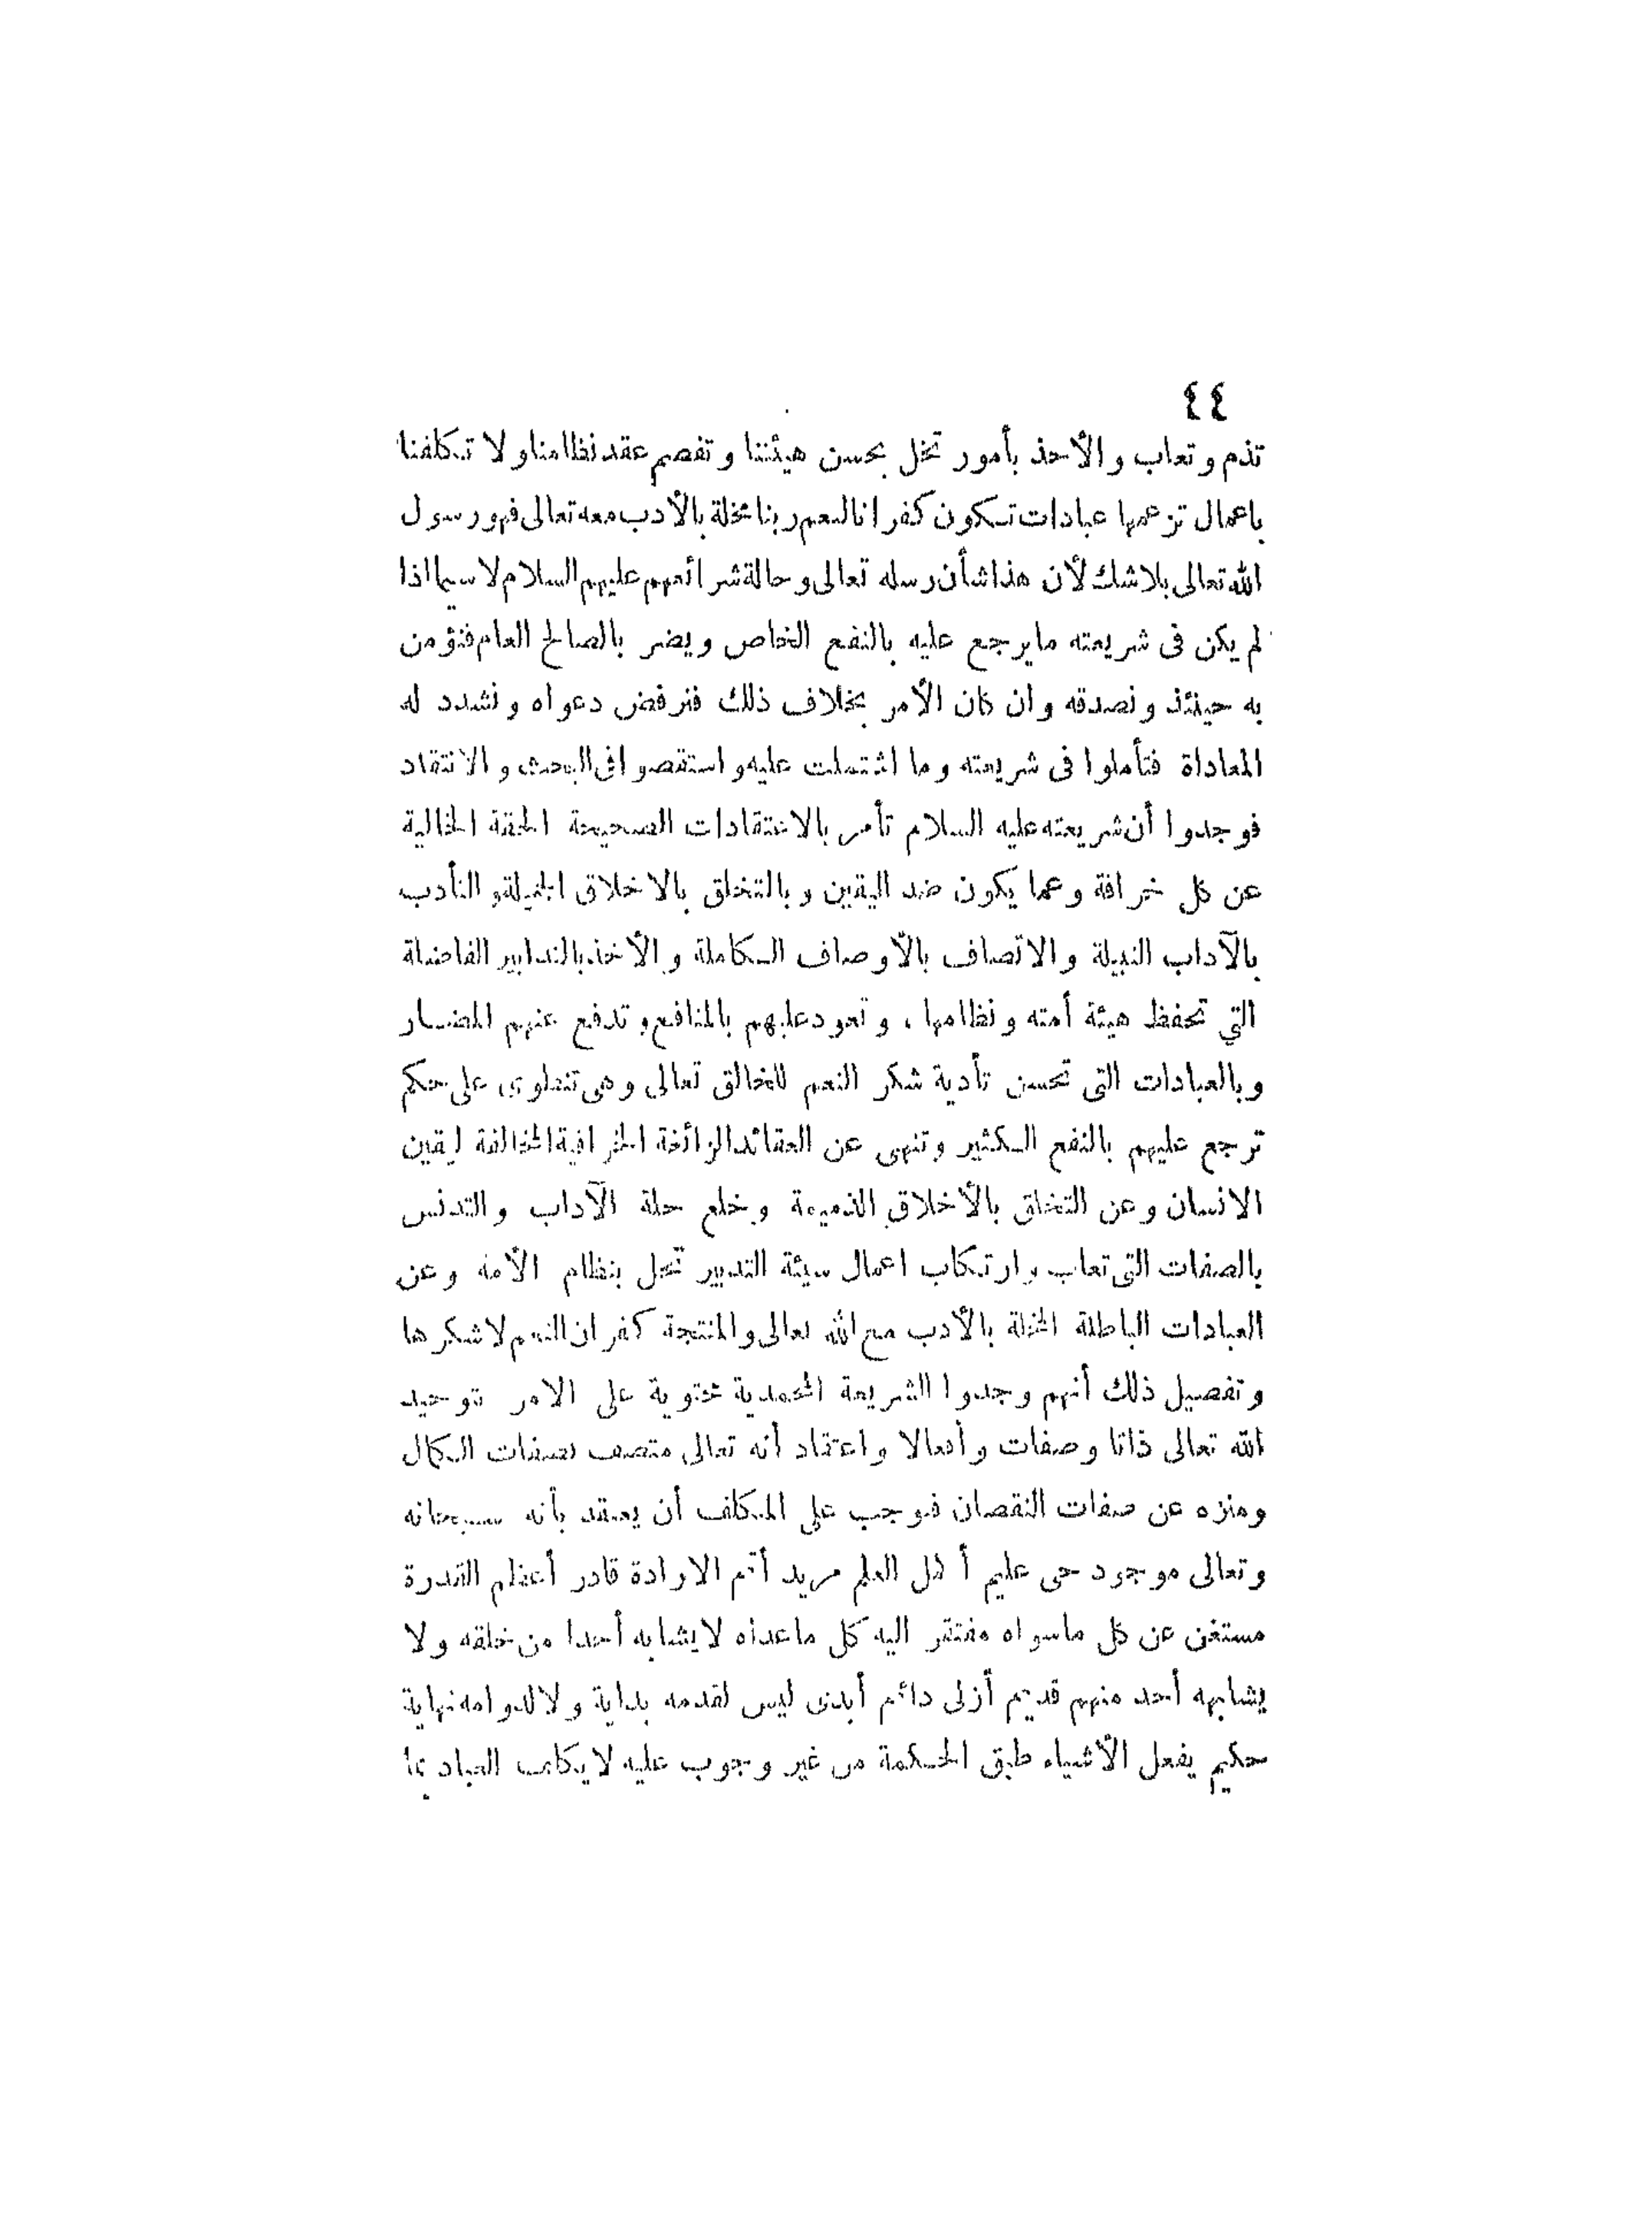 ٤٤
تذم وتعاب والأخذ بأمور تخل بحسن هيئتنا وتفصم عقد نظامنا ولا تكلفنا
باعمال تزعمها عبادات تكون كفرانا لنعم ربنا مخلة بالأدب معه تعالى فهو رسول
الله تعالى بلا شك لأن هذا شأن رسله تعالى وحالة شرائعهم عليهم السلام لا سيما اذا
لم يكن فى شريعته ما يرجع عليه بالنفع الخاص ويضر بالصالح العام فنؤمن
به حينئذ ونصدقه وان كان الأمر بخلاف ذلك فنرفض دعواه ونشدد له
المعاداة فتأملوا فى شريعته وما اشتملت عليه واستقصوا فى البحث والانتقاد
فوجدوا أن شريعته عليه السلام تأمر بالاعتقادات الصحيحة الحقة الخالية
عن كل خرافة وعما يكون ضد اليقين وبالتخلق بالاخلاق الجميلة والتأدب
بالآداب النبيلة والاتصاف بالأوصاف الكاملة والأخذ بالتدابير الفاضلة
التي تحفظ هيئة أمته ونظامها ، وتعود عليهم بالمنافع وتدفع عنهم المضار
وبالعبادات التى تحسن تأدية شكر النعم للخالق تعالى وهى تنطوى على حكم
ترجع عليهم بالنفع الكثير وتنهى عن العقائد الزائغة الخرافية المخالفة ليقين
الانسان وعن التخلق بالأخلاق الذميمة وخلع حلة الآداب والتدنس
بالصفات التى تعاب وارتكاب اعمال سيئة التدبير تخل بنظام الأمة وعن
العبادات الباطلة المخلة بالأدب مع الله تعالى والمنتجة كفران النعم لا شكرها
وتفصيل ذلك أنهم وجدوا الشريعة المحمدية محتوية على الامر بتوحيد
الله تعالى ذاتا وصفات وأفعالا واعتقاد أنه تعالى متصف بصفات الكمال
ومنزه عن صفات النقصان فوجب على المكلف أن يعتقد بأنه سبحانه
وتعالى موجود حى عليم أكمل العلم مريد أتم الارادة قادر أعظم القدرة
مستغن عن كل ما سواه مفتقر اليه كل ما عداه لا يشابه أحدا من خلقه ولا
يشابهه أحد منهم قديم أزلى دائم أبدى ليس لقدمه بداية ولا لدوامه نهاية
حكيم يفعل الأشياء طبق الحكمة من غير وجوب عليه لا يكلف العباد بما